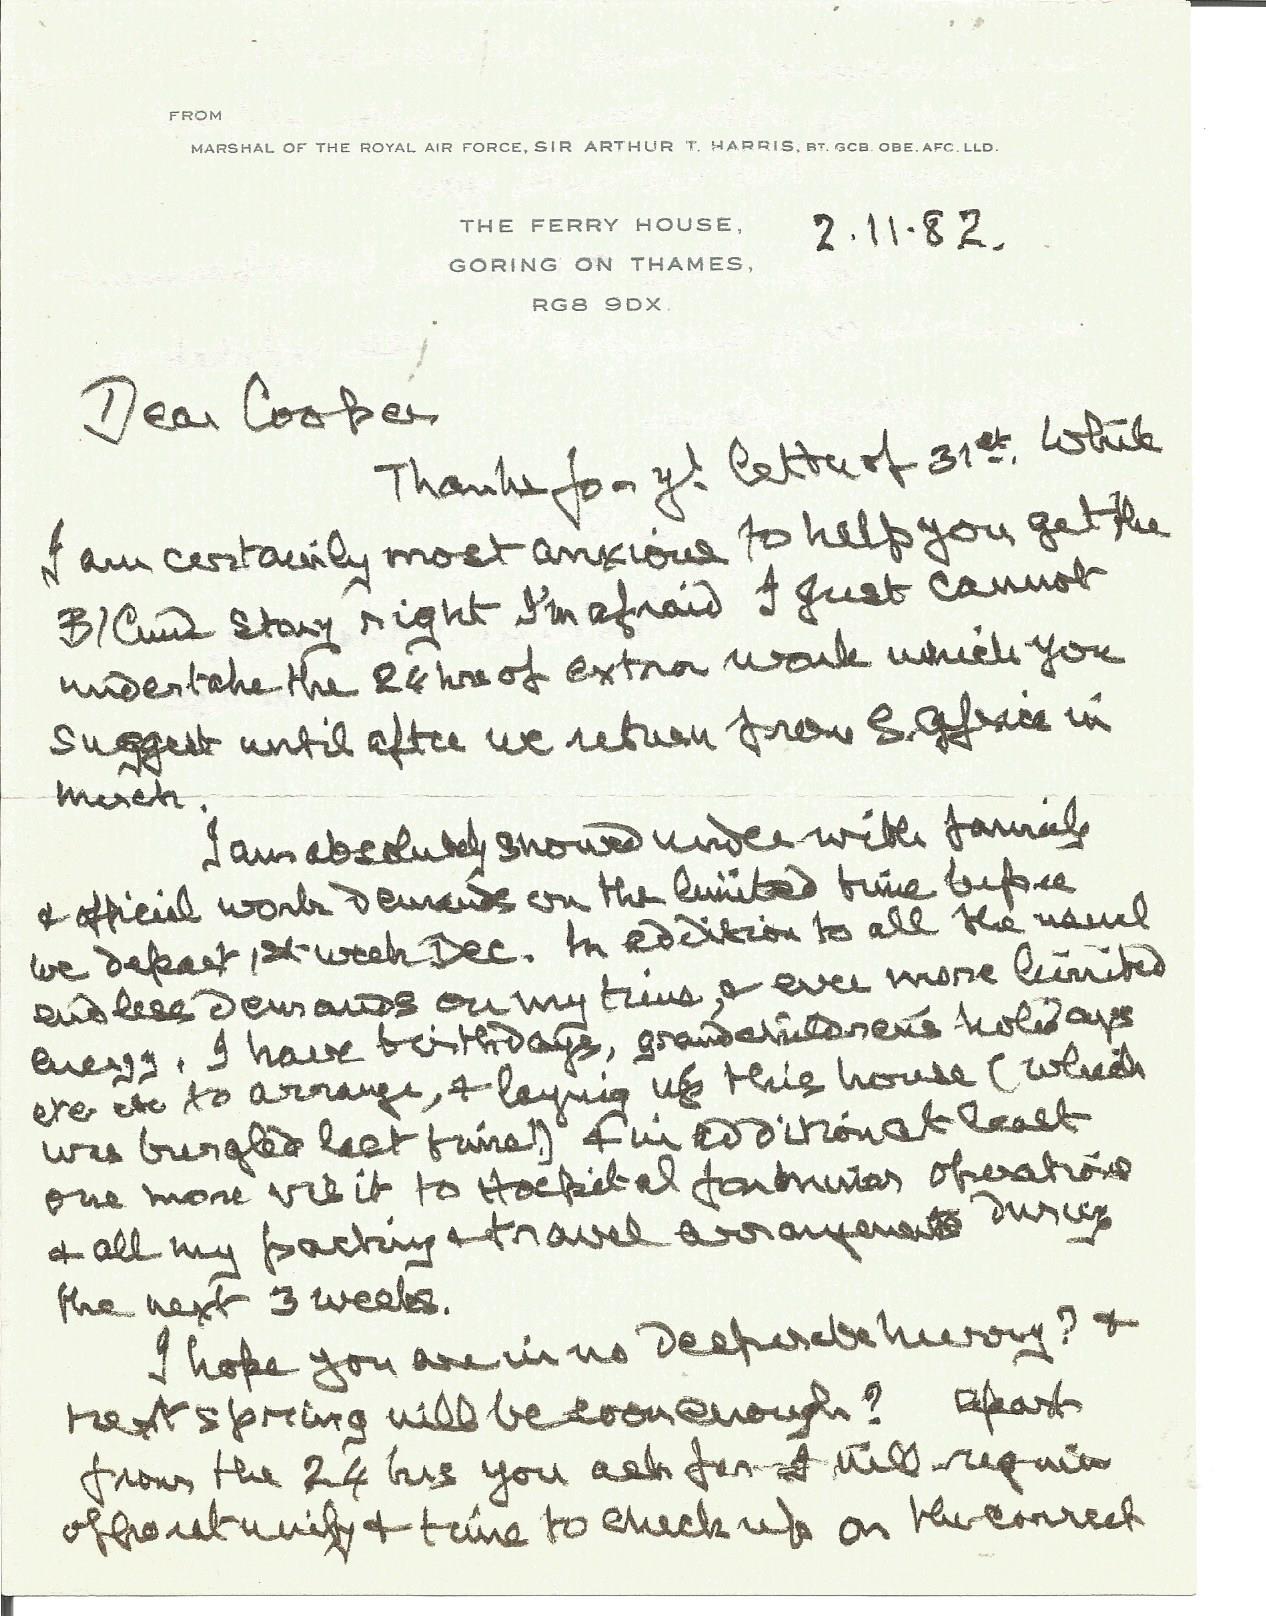 FROM
MARSHAL OF THE ROYAL AIR FORCE, SIR ARTHUR T. HARRIS, BT. GCB. OBE. AFC. LLD.
THE FERRY HOUSE,
GORING ON THAMES,
RG8 9DX.
2.11.82.
Dear Cooper
Thanks for yr. letter of 31st. While
I am certainly most anxious to help you get the
B/Cmd story right I'm afraid I just cannot
undertake the 24 hrs of extra work which you
suggest until after we return from S. Africa in
March.
I am absolutely snowed under with family
& official work demands on the limited time before
we depart 1st week Dec. In addition to all the usual
endless demands on my time, & ever more limited
energy. I have birthdays, grandchildren's holidays
etc etc to arrange, & laying up this house (which
was burgled last time!) & in addition at least
one more visit to Hospital for minor operations
& all my packing & travel arrangements during
the next 3 weeks.
I hope you are in no desperate hurry? &
next spring will be soon enough? Apart
from the 24 hrs you ask for I will require
opportunity & time to check up on the correct